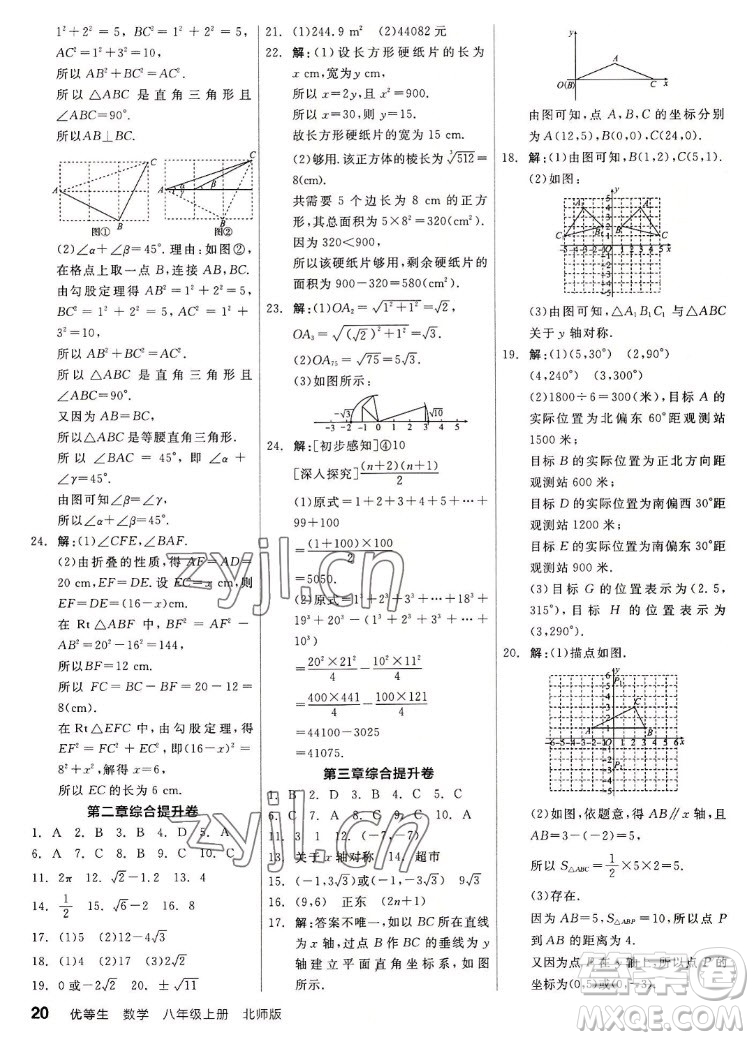 1²+2²=5, BC²=1²+2²=5,
AC²=1²+3²=10,
所以 AB²+BC²=AC².
所以 △ABC 是直角三角形且
∠ABC=90°.
所以AB⊥BC.
A B C
图①
A B C α β
图②
(2)∠α+∠β=45°. 理由:如图②,
在格点上取一点B,连接AB,BC.
由勾股定理得 AB²=1²+2²=5,
BC²=1²+2²=5, AC²=1²+
3²=10,
所以 AB²+BC²=AC².
所以 △ABC 是直角三角形且
∠ABC=90°.
又因为 AB=BC,
所以△ABC是等腰直角三角形.
所以 ∠BAC=45°,即∠α+
∠γ=45°.
由图可知∠β=∠γ,
所以∠α+∠β=45°.
24. 解:(1)∠CFE,∠BAF.
(2)由折叠的性质,得 AF=AD=
20 cm,EF=DE. 设 EC=x cm,则
EF=DE=(16-x)cm.
在 Rt△ABF 中,BF²=AF²-
AB²=20²-16²=144,
所以BF=12 cm.
所以 FC=BC-BF=20-12=
8(cm).
在 Rt△EFC 中,由勾股定理,得
EF²=FC²+EC²,即(16-x)²=
8²+x²,解得 x=6.
所以EC的长为 6 cm.
第二章综合提升卷
1. A 2. B 3. D 4. D 5. A
6. A 7. A 8. B 9. C 10. C
11. 2π 12. < 13. 2
14. 1/2 15. -2√2 16. 8
17. (1)5 (2)12-4√3
18. (1)4 (2)17
19. 0或-2√2 20. ±√11
20 优等生 数学 八年级上册 北师版
21. (1)244.9 m² (2)44082元
22. 解:(1)设长方形硬纸片的长为
x cm,宽为y cm,
所以 x=2y,x²=900.
所以 x=30,则 y=15.
故长方形硬纸片的宽为 15 cm.
(2)够用.该正方体的棱长为∛512=
8(cm),
共需要 5 个边长为 8 cm 的正方
形,其总面积为 5×8²=320(cm²).
因为 320<900,
所以硬纸片够用,剩余硬纸片的
面积为 900-320=580(cm²).
23. 解:(1)OA₂=√(1²+1²)=√2,
OA₃=√((√2)²+1²)=√3.
(2)OA₇₅=√75=5√3.
(3)如图所示:
-√3 √10
-3 -2 -1 0 1 2 3 4
24. 解:[初步感知]④10
[深入探究](n+2)(n+1)/2
(1)原式=1+2+3+4+5+…+
99+100
=(1+100)×100/2
=5050.
(2)原式=1³+2³+3³+…+18³+
19³+20³-(1³+2³+3³+…+
10³)
=20²×21²/4-10²×11²/4
=400×441/4-100×121/4
=44100-3025
=41075.
第三章综合提升卷
1. B 2. D 3. B 4. C 5. C
6. C 7. C 8. B 9. A 10. D
11. 3 1 12. (-7,-7)
13. 关于x轴对称 14. 超市
15. (-1,3√3)或(-1,-3√3) 9√3
16. (9,6) 正东 (2n+1)
17. 解:答案不唯一,如以BC所在直线
为 x 轴,过点 B 作 BC 的垂线为 y
轴建立平面直角坐标系,如图
所示.
y A O(B) C x
由图可知,点 A,B,C 的坐标分别
为A(12,5),B(0,0),C(24,0).
18. 解:(1)由图可知,B(1,2),C(5,1).
(2)如图:
(3)由图可知,△A₁B₁C₁ 与△ABC
关于 y 轴对称.
19. 解:(1)(5,30°) (2,90°)
(4,240°) (3,300°)
(2)1800÷6=300(米),目标 A 的
实际位置为北偏东 60°距观测站
1500 米;
目标 B 的实际位置为正北方向距
观测站 600 米;
目标D的实际位置为南偏西30°距
观测站 1200 米;
目标E的实际位置为南偏东30°距
观测站 900 米.
(3)目标 G 的位置表示为(2.5,
315°),目标 H 的位置表示为
(3,290°).
20. 解:(1)描点如图.
y P₁ C A B x P₂
(2)如图,依题意,得AB∥x轴,且
AB=3-(-2)=5,
所以 S△ABC=1/2×5×2=5.
(3)存在.
因为 AB=5,S△ABP=10,所以点 P
到AB的距离为 4.
又因为点P在y轴上,所以点 P 的
zyjl.cn
zyjl.cn